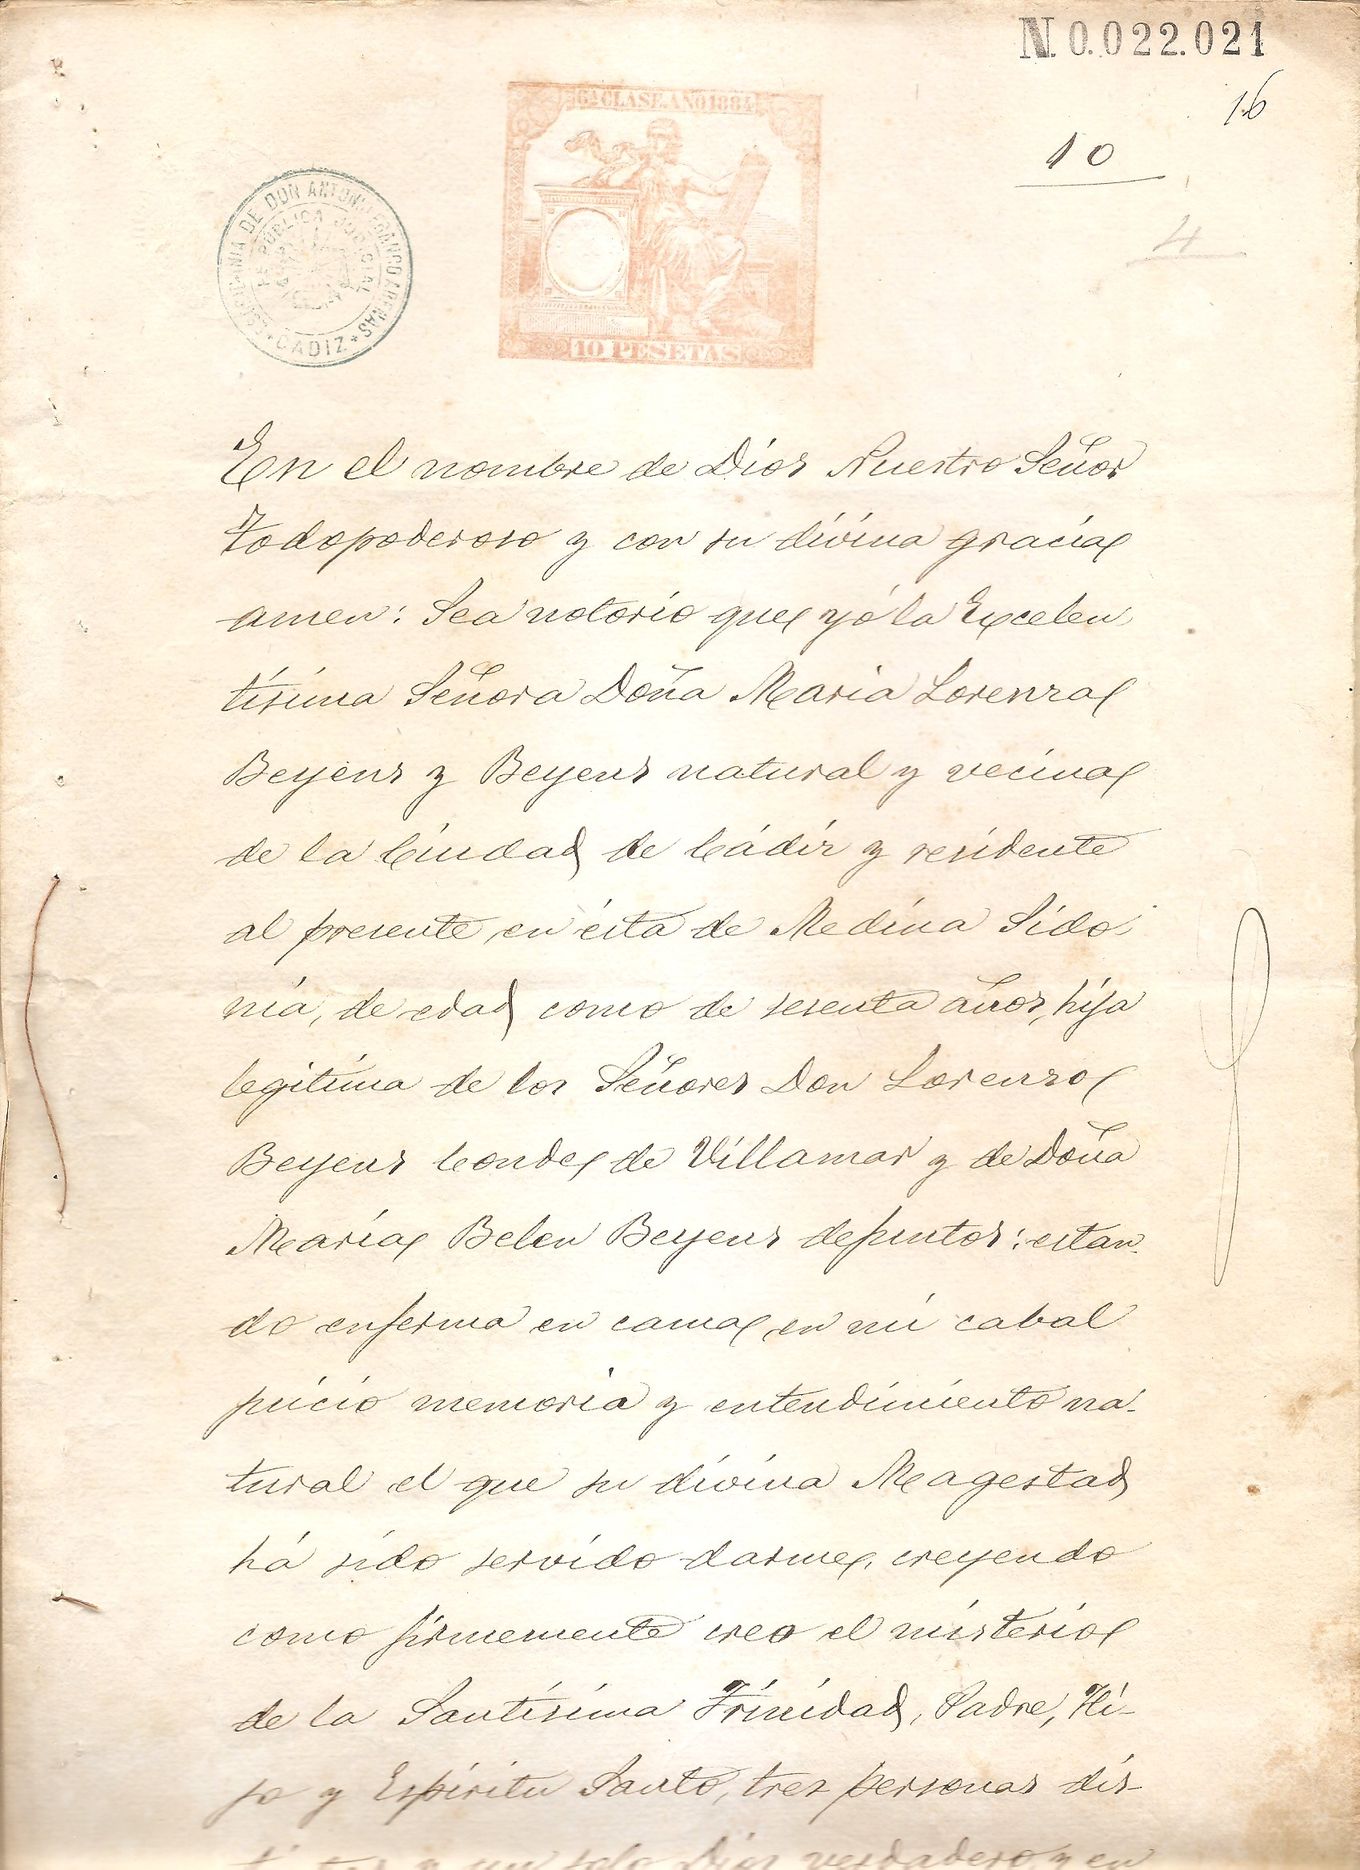 N. 0.022.021
16
6ª CLASE. AÑO 1884
10
4
ESCRIBANIA DE DON ANTONIO FRANCO ARENAS
FE PÚBLICA JUDICIAL
* CADIZ *
10 PESETAS
En el nombre de Dios Nuestro Señor
Todopoderoso y con su divina gracia
amen: Sea notorio que yó la Excelen
tísima Señora Doña Maria Lorenza
Beyens y Beyens natural y vecina
de la Ciudad de Cádiz y residente
al presente en ésta de Medina Sido
nia, de edad como de sesenta años, hija
legitima de los Señores Don Lorenzo
Beyens Conde de Villamar y de Doña
María Belen Beyens difuntos: estan-
do enferma en cama, en mi cabal
juicio memoria y entendimiento na-
tural el que su divina Magestad
há sido servido darme, creyendo
como firmemente creo el misterio
de la Santísima Trinidad, Padre, Hi-
jo y Espíritu Santo, tres personas dis-
tintas y un solo Dios verdadero y en